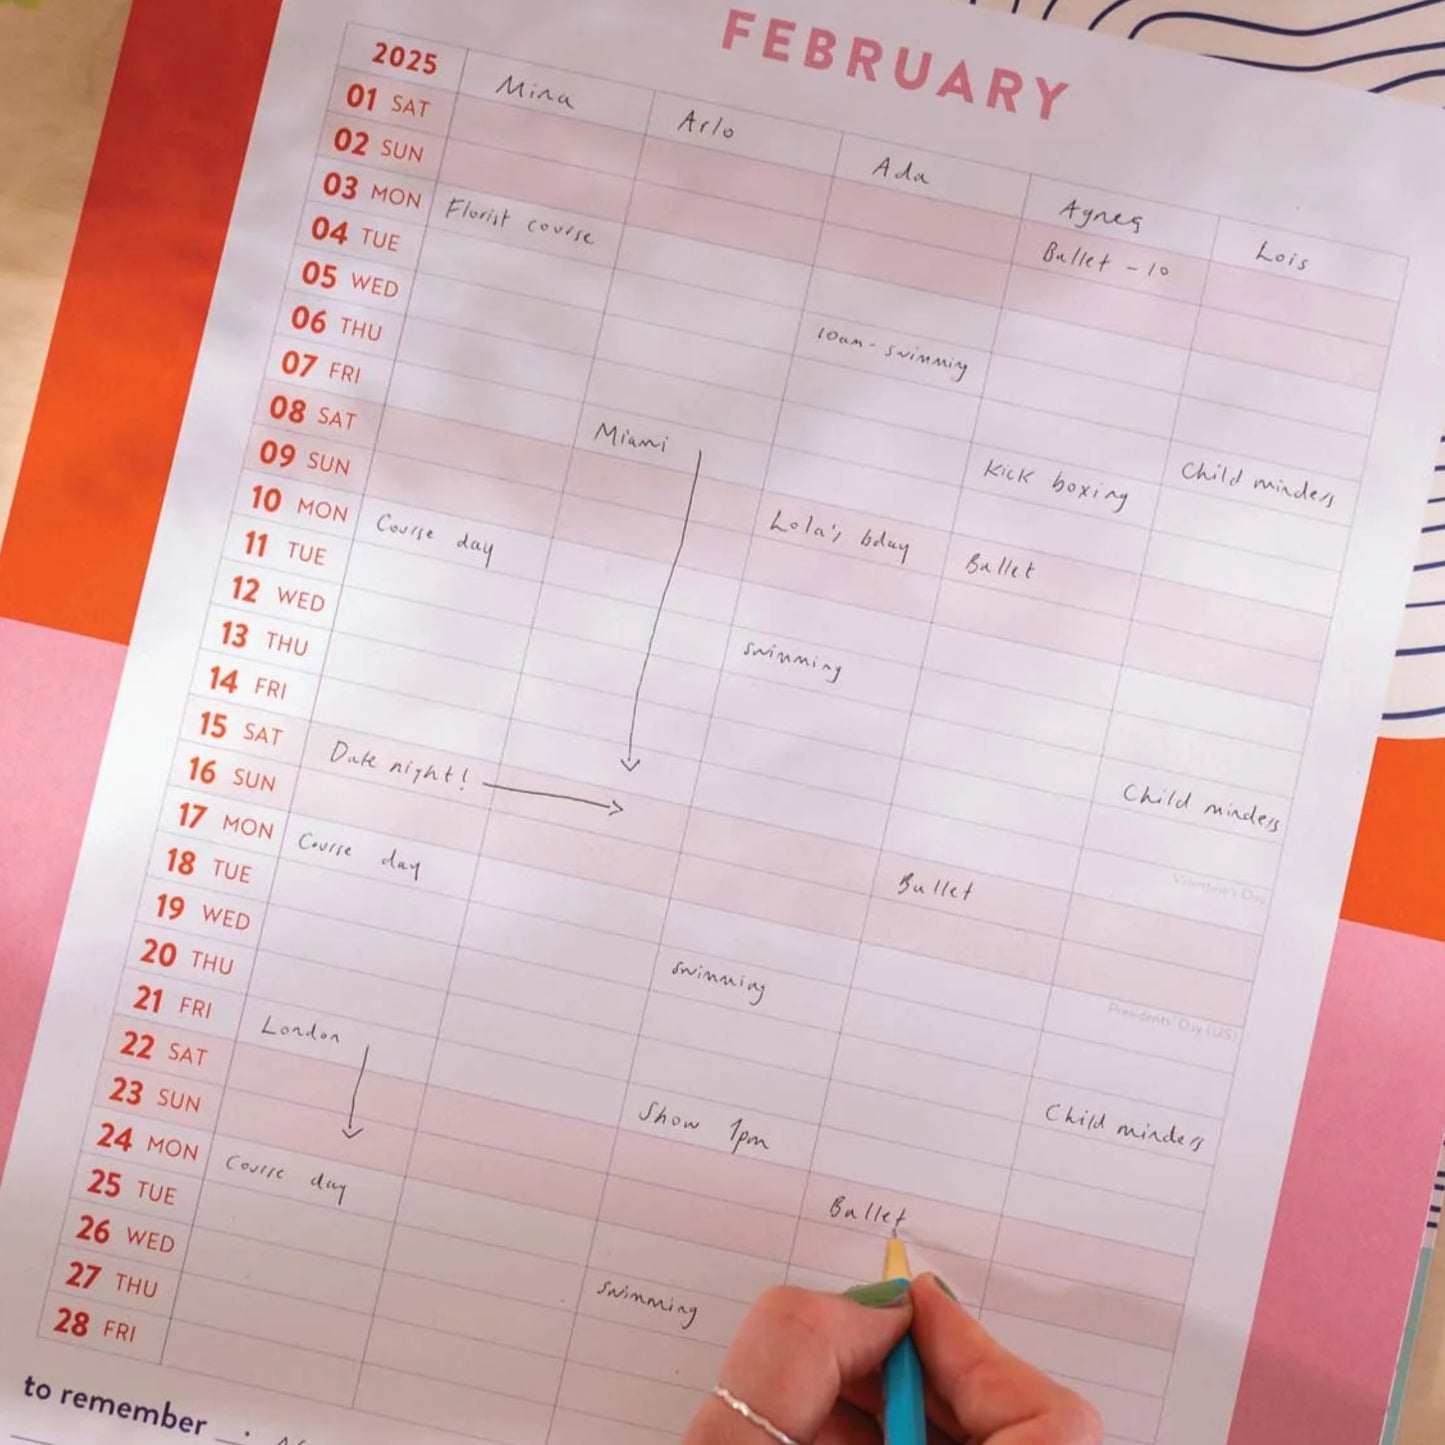 FEBRUARY
2025 Mina Arlo Ada Agnes Lois
01 SAT Ballet - 10
02 SUN
03 MON Florist course
04 TUE 10am - swimming
05 WED Child minders
06 THU Kick boxing
07 FRI Miami
08 SAT Lola's bday Ballet
09 SUN
10 MON Course day
11 TUE swimming
12 WED Child minders
13 THU
14 FRI Valentine's Day
15 SAT Date night! Ballet
16 SUN
17 MON Course day Presidents' Day (US)
18 TUE swimming
19 WED Child minders
20 THU
21 FRI London Show 1pm
22 SAT Ballet
23 SUN
24 MON Course day
25 TUE swimming
26 WED
27 THU
28 FRI
to remember